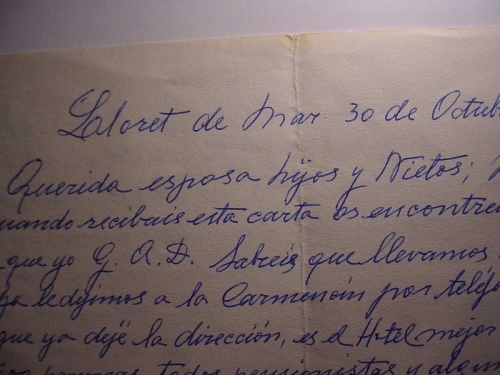 Laloret de Mar 30 de Octub
Querida esposa hijos y Nietos;
uando recibais esta carta os encontre
que yo G. A. D. Sabreis que llevamos
ledijimos a la Carmencín por teléf
que ya dejé la dirección, es el Hotel mejor
personas todos pensionistas y algun